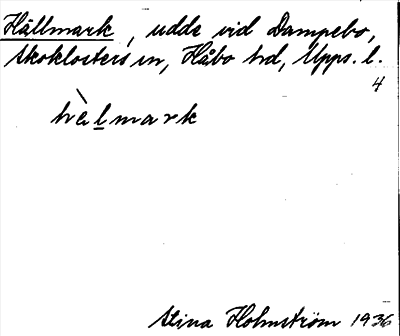 Hällmark, udde vid Dampebo,
Skoklosters sn, Håbo hd, Upps. l.
4
hèlmark
Stina Holmström 1936